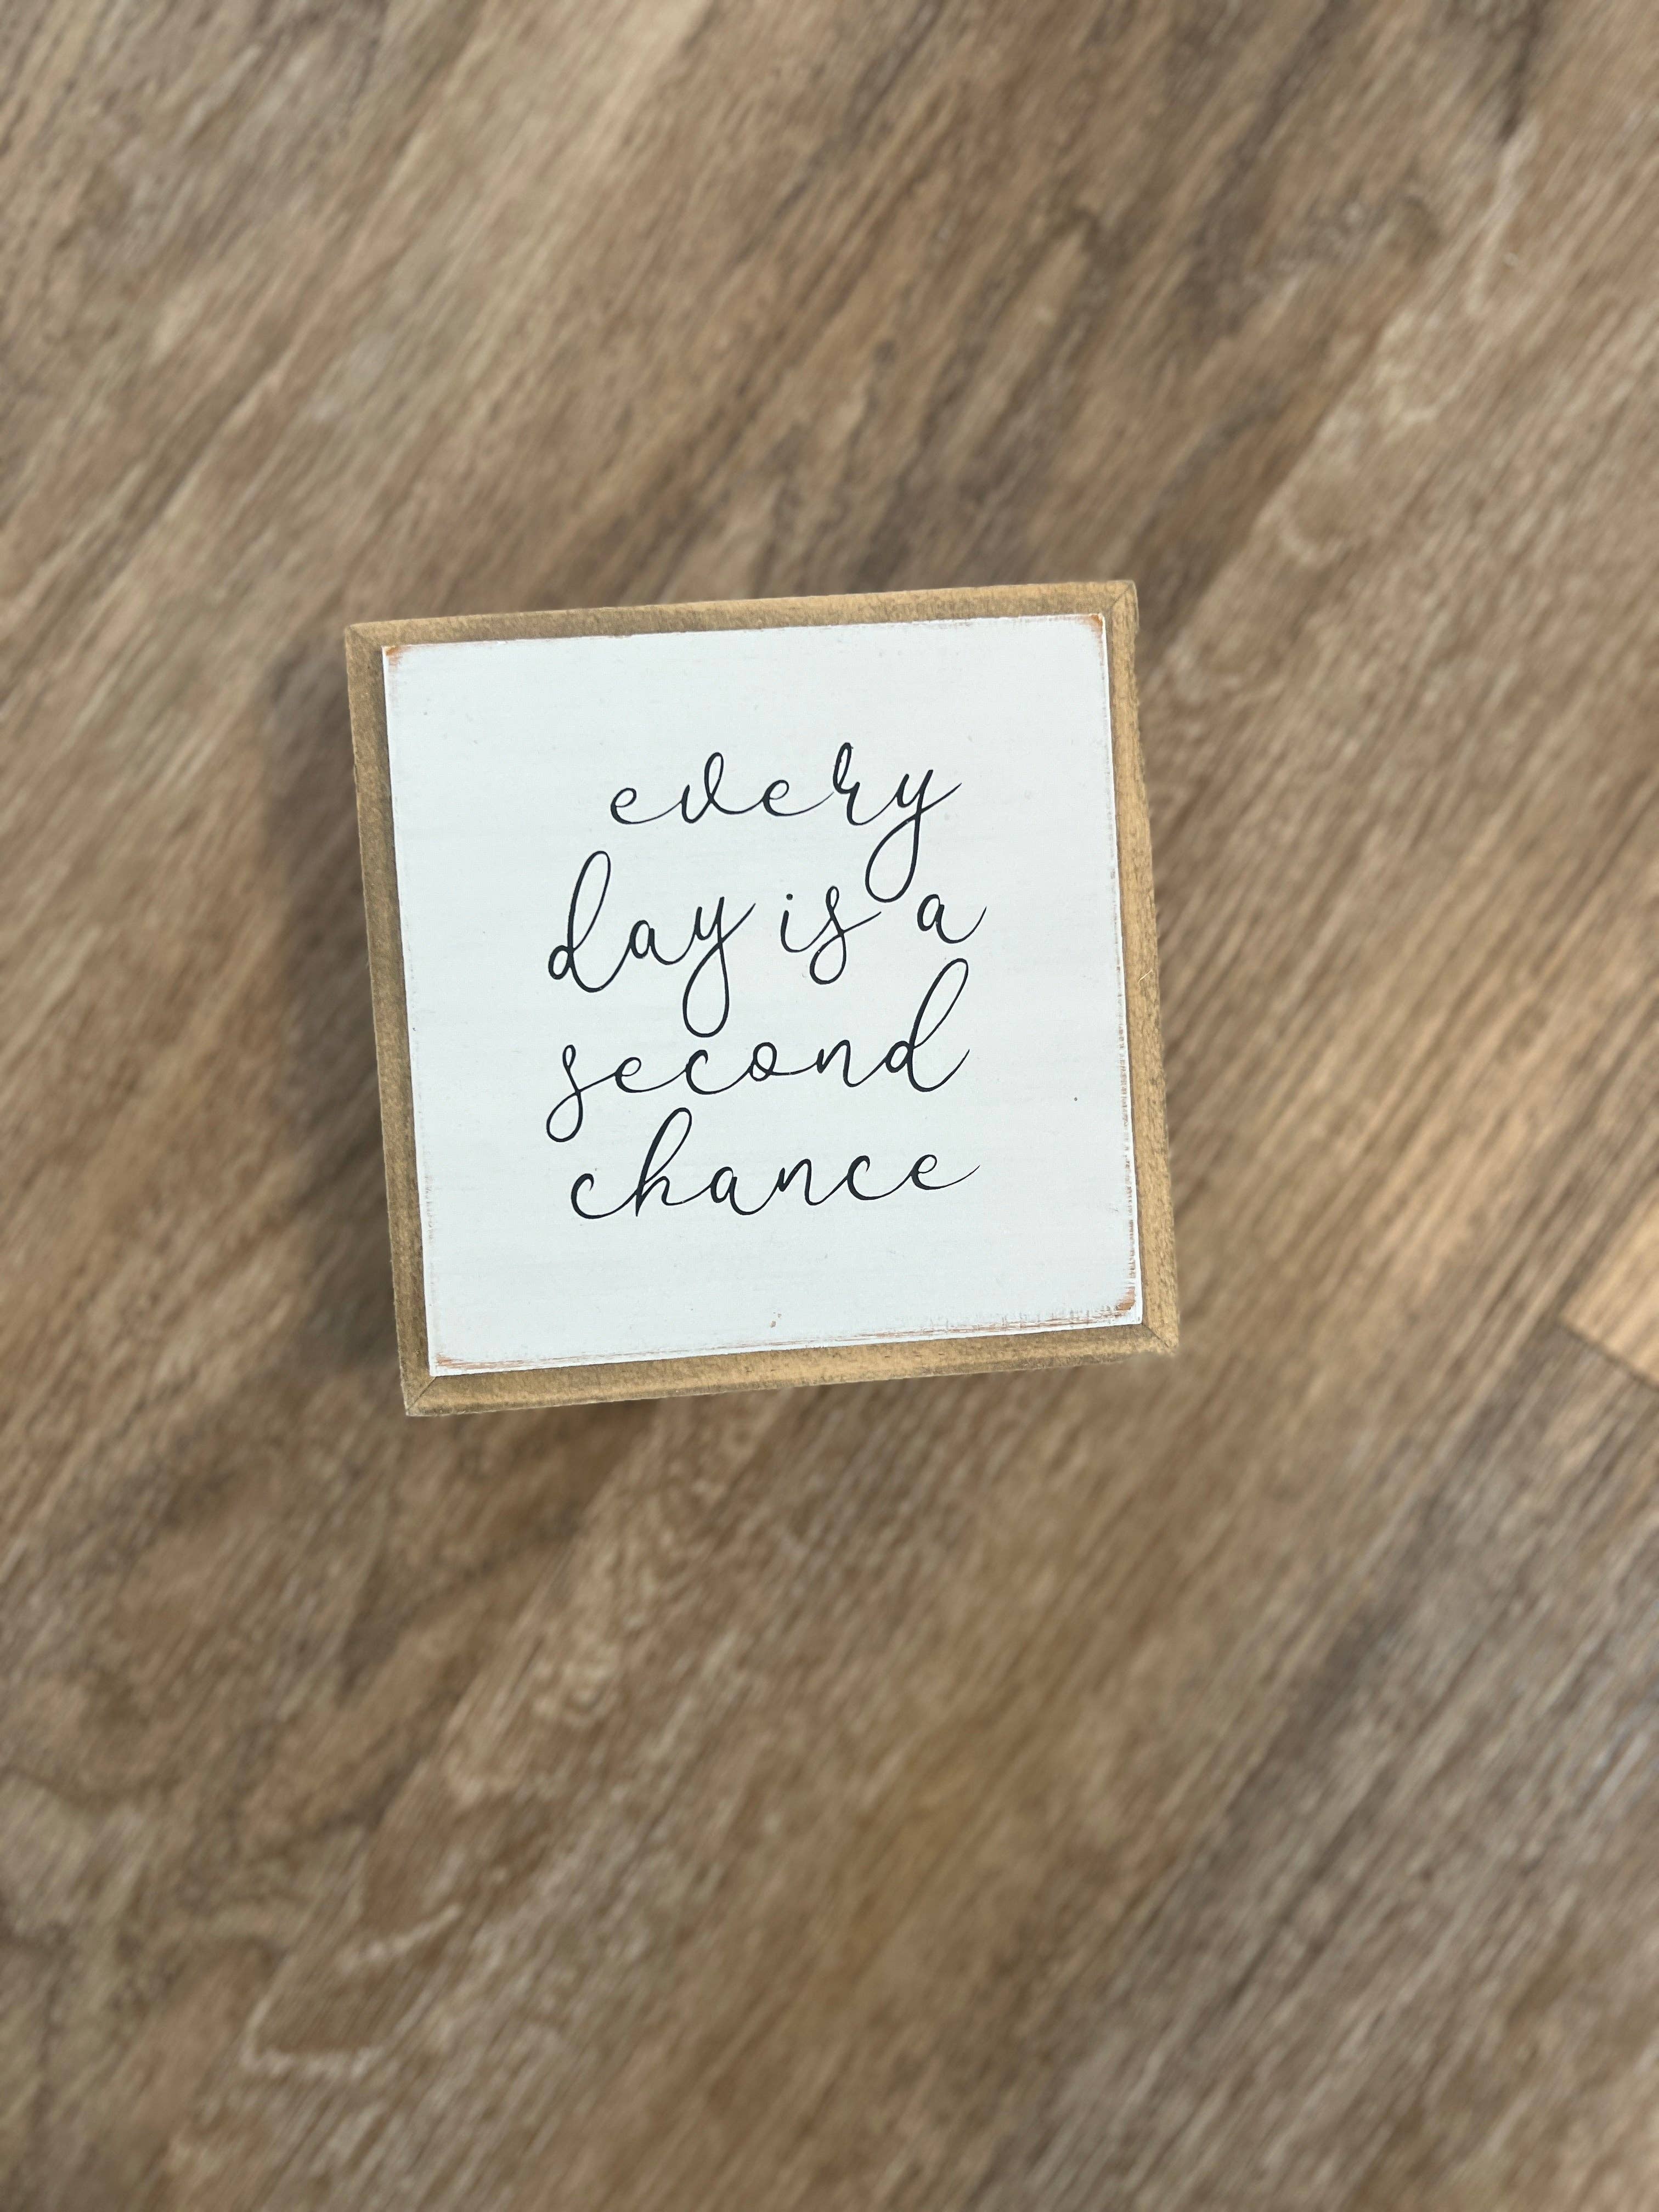 every
day is a
second
chance